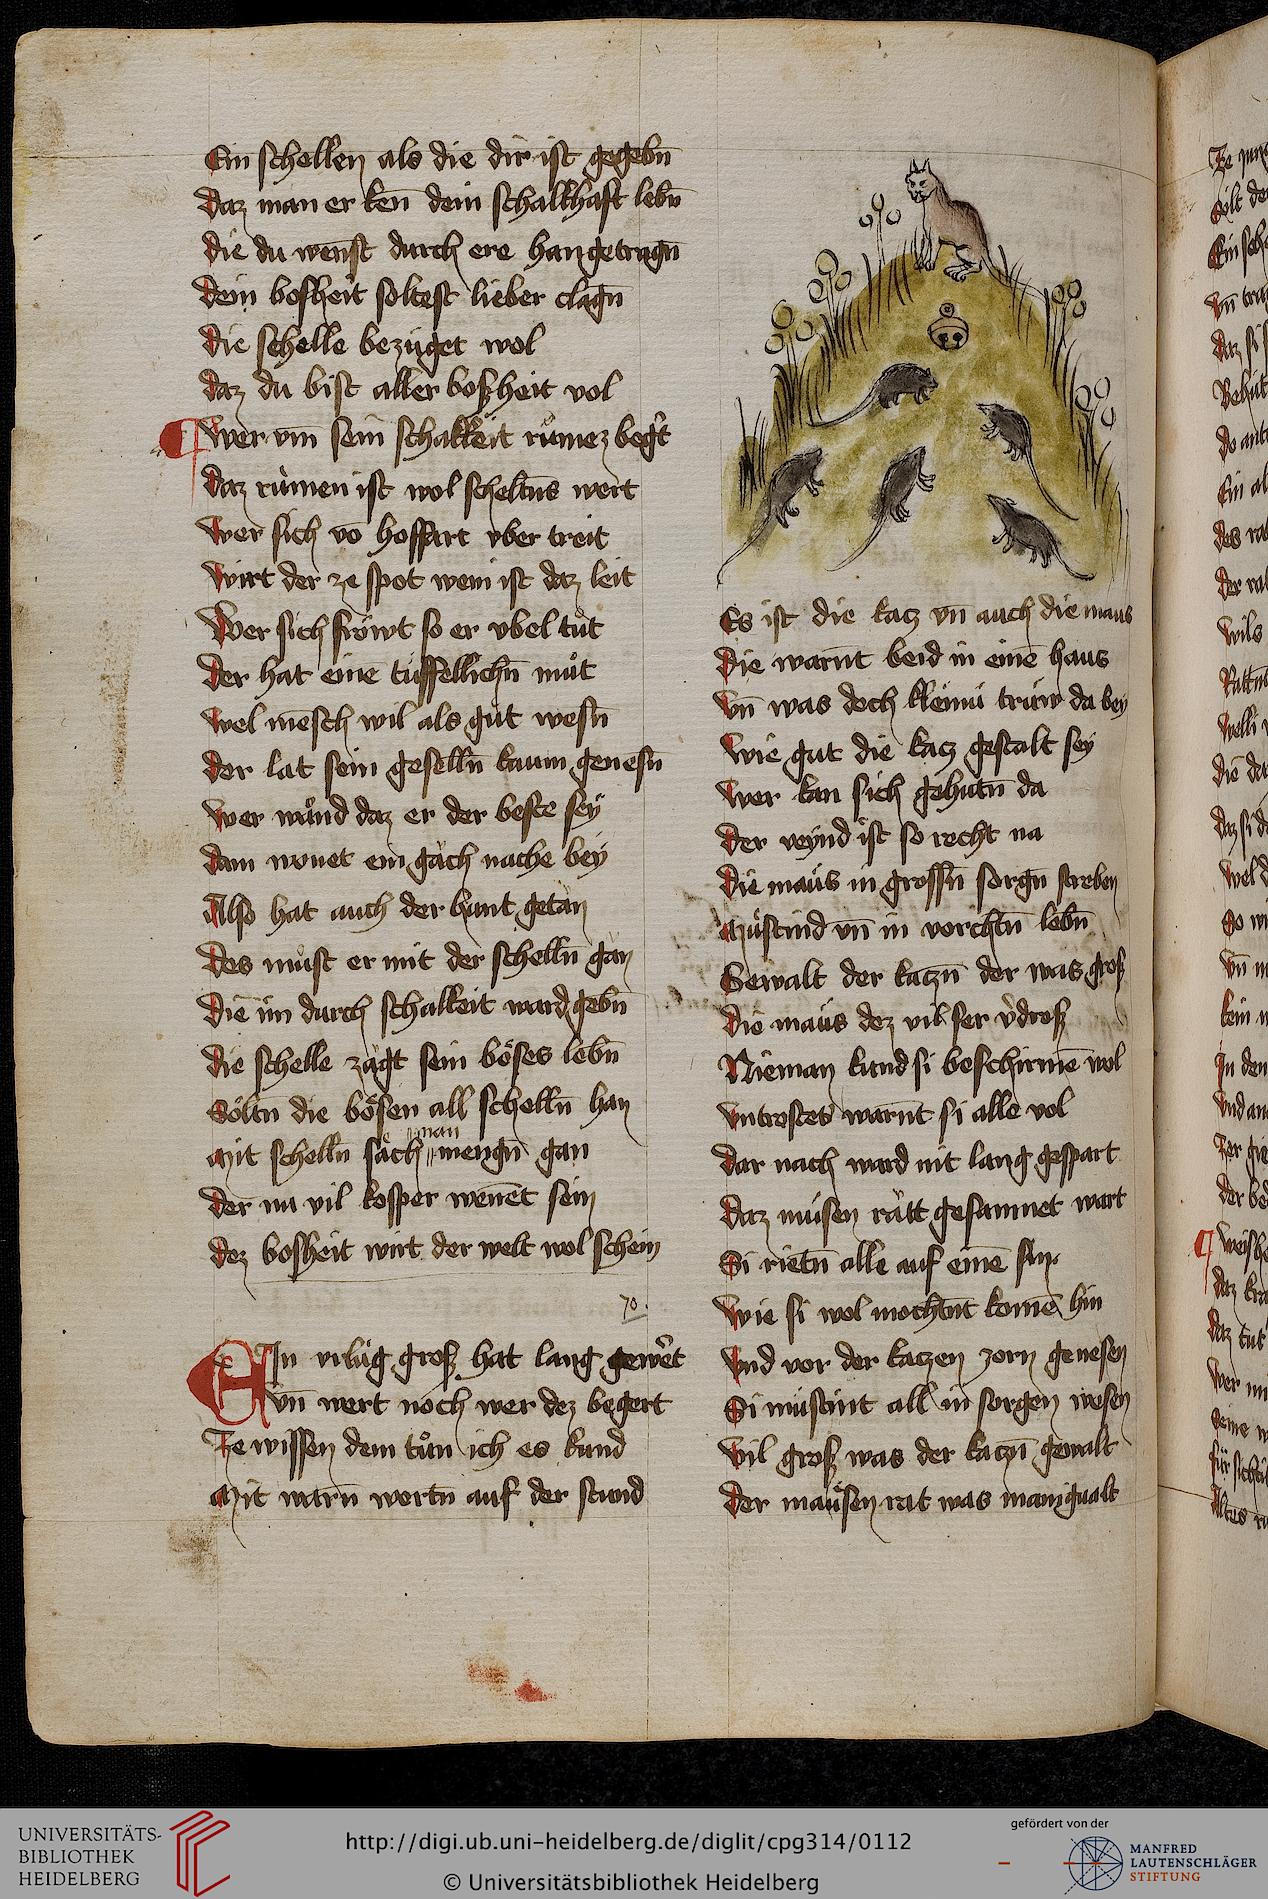 Ein schellen als die dir ist gegebn̄
daz man er ken̄ dein schalkhaft lebn̄
die du wenst durch ere han getragn̄
dein bosheit soltest lieber clagn̄
die schelle bezüget wol
daz du bist aller boßheit vol
Wer vm̄ sein schalkeit růmez
daz rümen ist wol scheltn̄s wert
Wer sich vō hoffart vber treit
wirt der ze spot wem ist daz leit
Wer sich fröwt so er vbel tůt
der hat eine tüffellichn̄ můt
wel mēsch wil als gůt wesn̄
der lat sein geselln̄ kaum genesn̄
wer wånd daz er der beste seÿ
dam wonet ein gäch nache beÿ
Also hat auch der hunt getan
des můst er mit der schelln̄ gan
die im durch schalkeit ward gebn̄
die schelle zägt sein böses lebn̄
Söltn̄ die bösen all schelln̄ han
Mit schelln̄ säch man mengn̄ gan
der nu vil kosper wenēt sein
dez bosheit wirt der welt wol schein
70.
Ein vrlüg groß hat lang gewert
vn̄ wert noch wer dez begert
Ze wissen dem tůn ich es kund
Mit warn̄ wortn̄ auf der stund
Es ist die katz vn̄ auch die maus
die warnt beid in einē haus
vn̄ was doch kleinü trüw da bey
wie gut die katz gestalt sey
wer kan sich gehütn̄ da
der veÿnd ist so recht na
die maüs in grossn̄ sorgn̄ streben
Müstind vn̄ in vorchtn̄ lebn̄
Gewalt der katzn̄ der was groß
die maüs dez vil ser v̾droß
Nieman kund si beschirmē wol
vntrostes warnt si alle vol
dar nach ward nit lang gespart
daz müsen rätt gesamnet wart
Si rietn̄ alle auf einē sin
wie si wol mochtn̄t komē hin
vnd vor der katzen zorn genesen
Si müstint all in sorgen wesen
vil groß was der katzn̄ gewalt
der maüsen rat was manigualt
UNIVERSITÄTS-
BIBLIOTHEK
HEIDELBERG
http://digi.ub.uni-heidelberg.de/diglit/cpg314/0112
© Universitätsbibliothek Heidelberg
gefördert von der
MANFRED
LAUTENSCHLÄGER
STIFTUNG